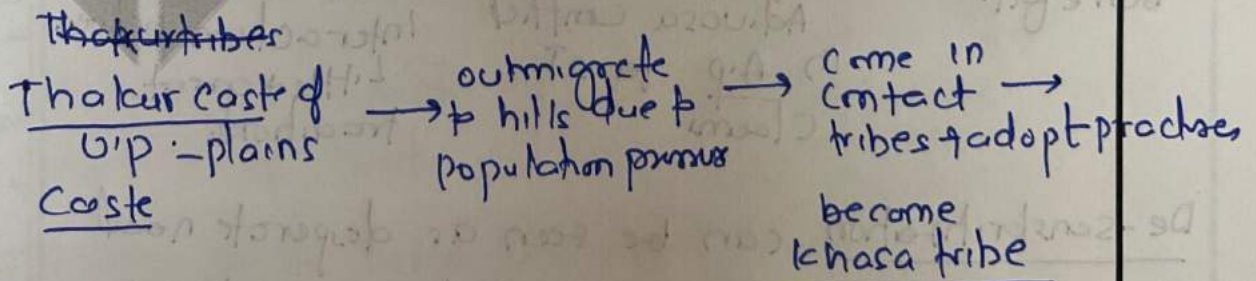 Thakur tribes
Thakur caste of
U.P. - plains
Caste
→ outmigrate
to hills due to
population pressure
→ come in
contact →
tribes + adopt practises
become
khasa tribe